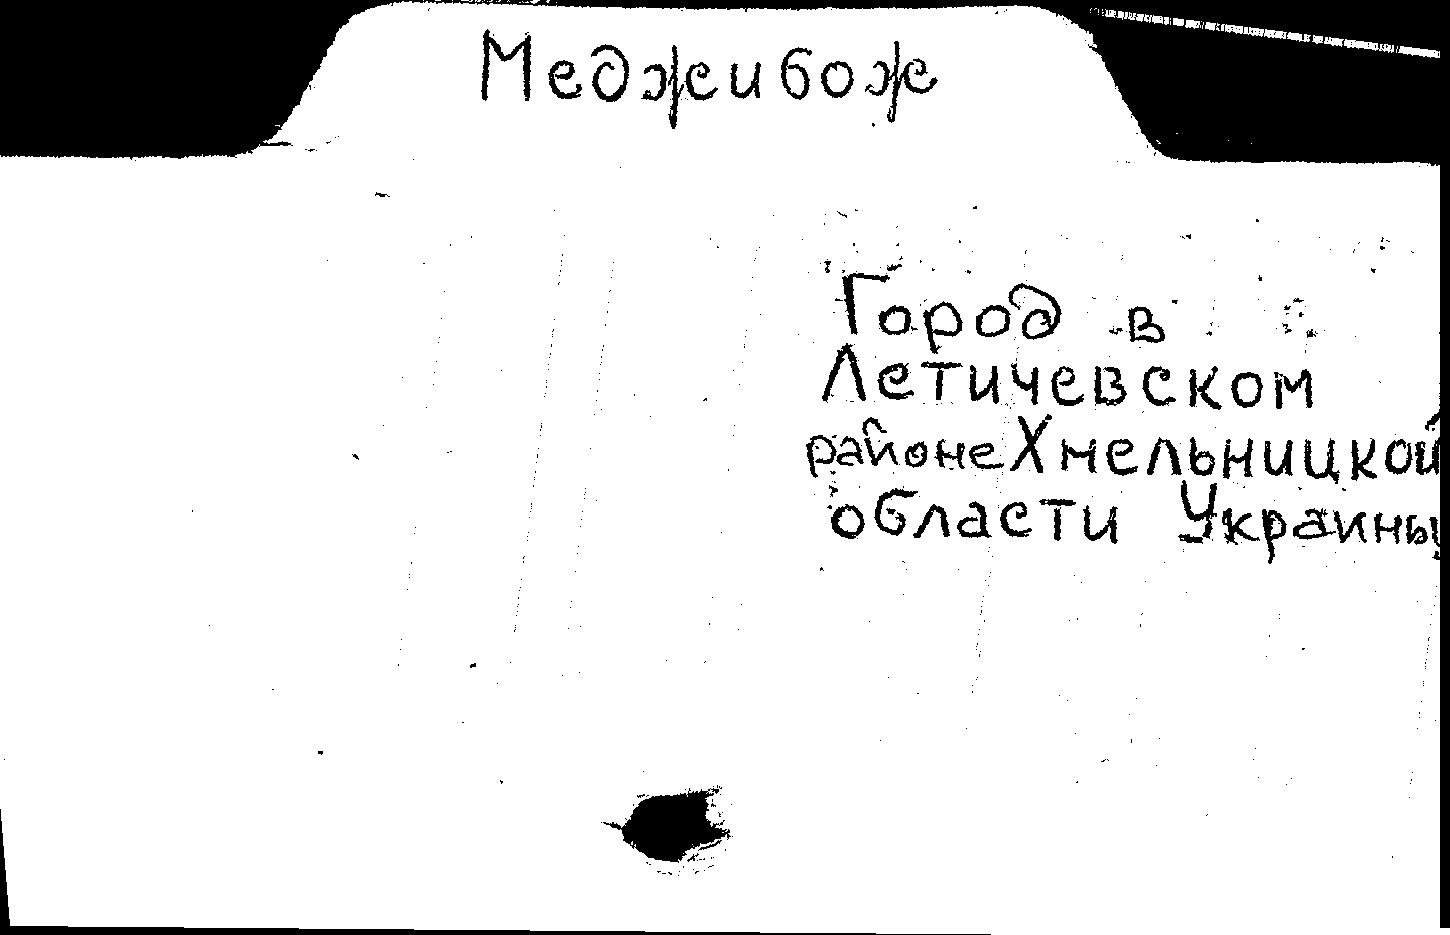 Меджибож
Город в
Летичевском
районе Хмельницкой
области Украины